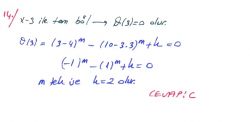 14./ x-3 ile tam böl → ϑ(3)=0 olur.
ϑ(3) = (3-4)^m - (10-3.3)^m + k = 0
(-1)^m - (1)^m + k = 0
m tek ise k=2 olur.
CEVAP: C